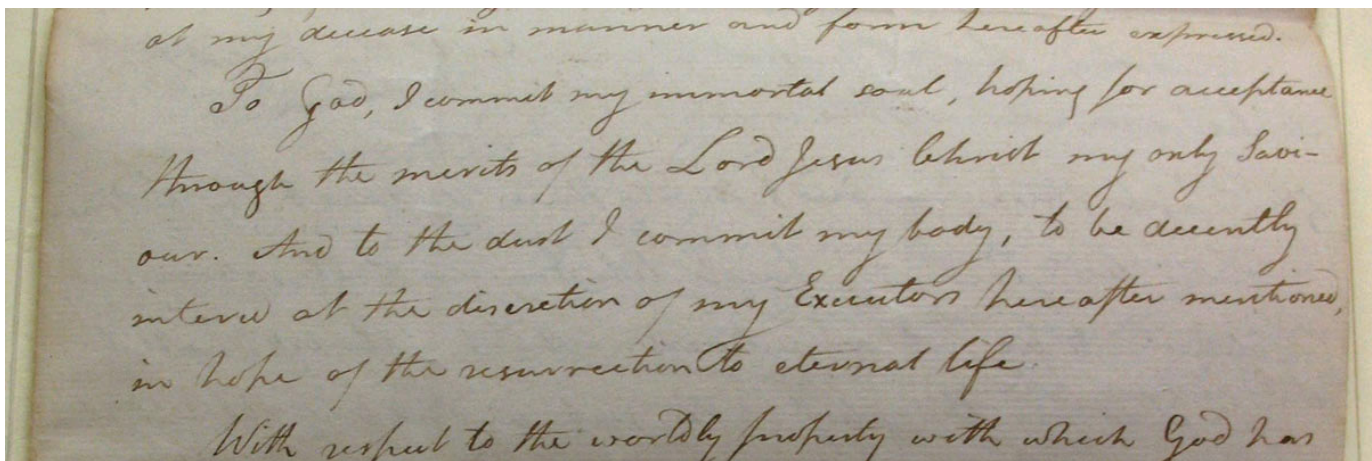 at my decease in manner and form hereafter expressed.
To God, I commit my immortal soul, hoping for acceptance
through the merits of the Lord Jesus Christ my only Savi-
our. And to the dust I commit my body, to be decently
intered at the discretion of my Executors hereafter mentioned,
in hope of the resurrection to eternal life.
With respect to the worldly property with which God has